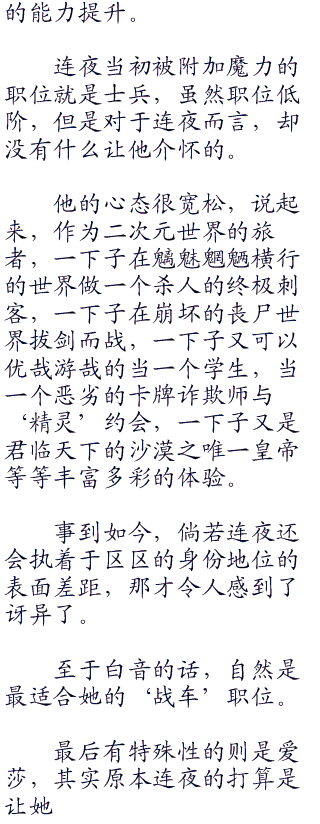 的能力提升。
连夜当初被附加魔力的
职位就是士兵，虽然职位低
阶，但是对于连夜而言，却
没有什么让他介怀的。
他的心态很宽松，说起
来，作为二次元世界的旅
者，一下子在魑魅魍魉横行
的世界做一个杀人的终极刺
客，一下子在崩坏的丧尸世
界拔剑而战，一下子又可以
优哉游哉的当一个学生，当
一个恶劣的卡牌诈欺师与
‘精灵’约会，一下子又是
君临天下的沙漠之唯一皇帝
等等丰富多彩的体验。
事到如今，倘若连夜还
会执着于区区的身份地位的
表面差距，那才令人感到了
讶异了。
至于白音的话，自然是
最适合她的‘战车’职位。
最后有特殊性的则是爱
莎，其实原本连夜的打算是
让她